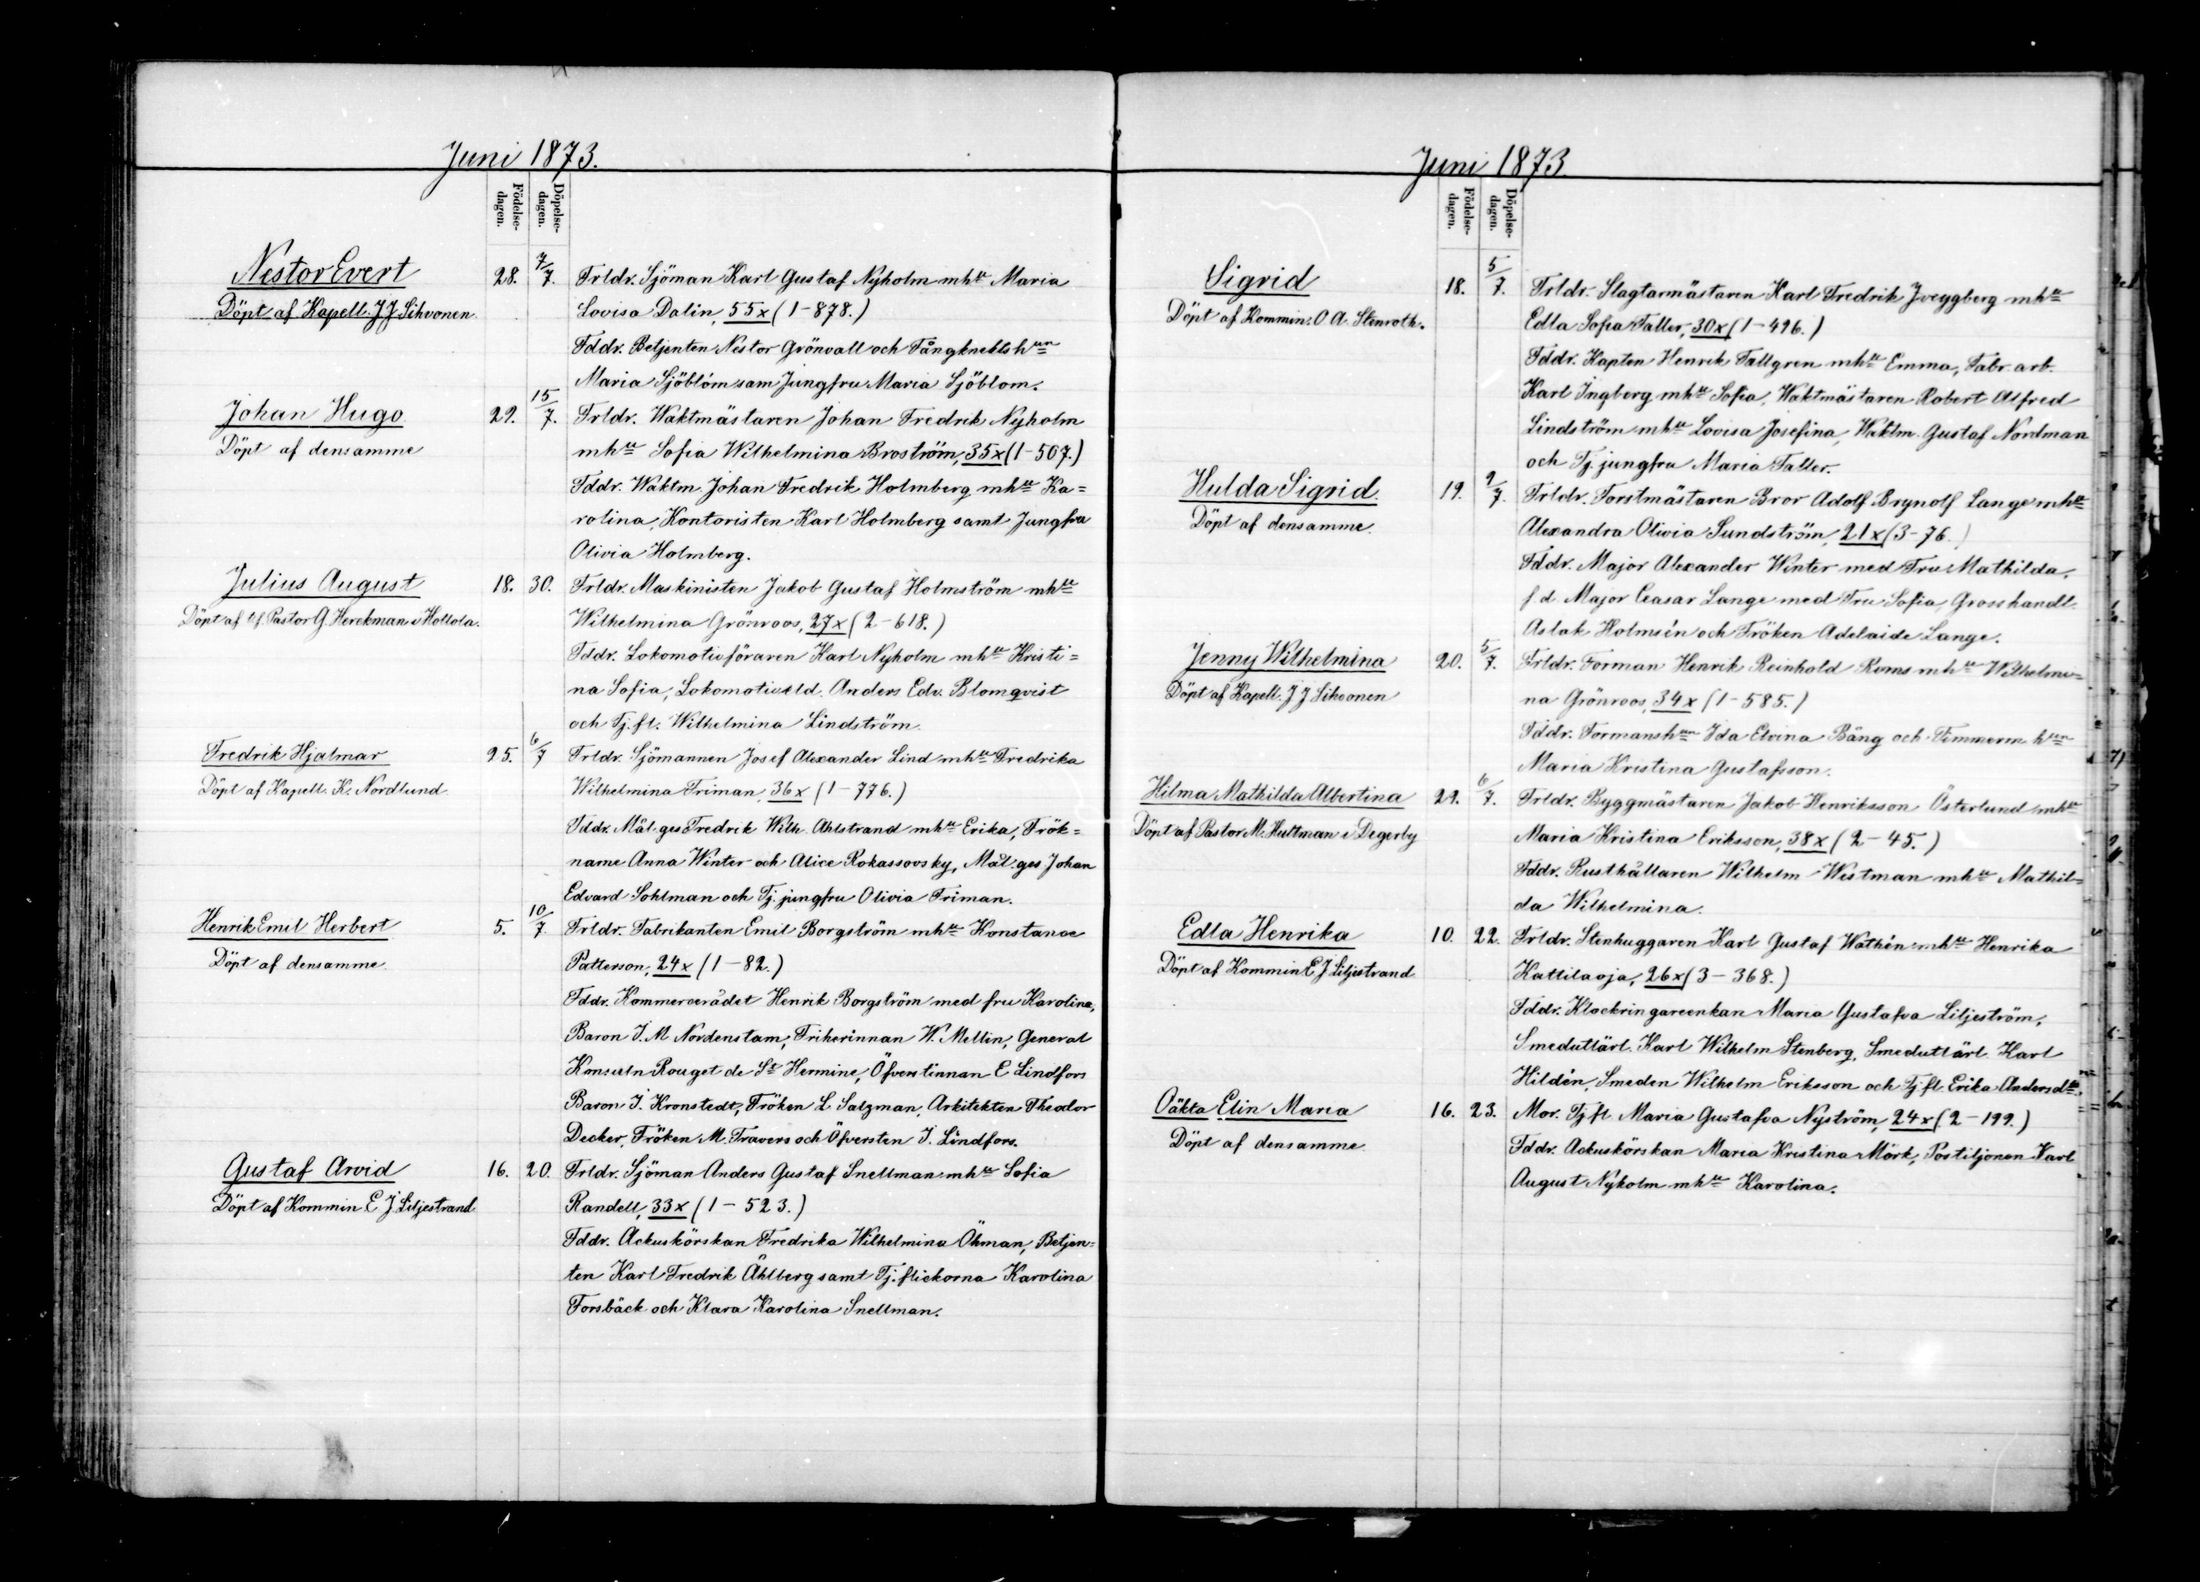 Juni 1873.
Födelse-dagen.
Döpelse-dagen.
Nestor Evert
Döpt af Kapell. J J Sihvonen.
28. 7/7.
Frldr. Sjöman Karl Gustaf Nyholm mhu Maria
Lovisa Dalin, 55x (1-878.)
Fddr. Betjenten Nestor Grönvall och Fångknektshun
Maria Sjöblom sam Jungfru Maria Sjöblom.
Johan Hugo
Döpt af densamme
29. 15/7.
Frldr. Waktmästaren Johan Fredrik Nyholm
mhu Sofia Wilhelmina Broström, 35x (1-507.)
Fddr. Waktm. Johan Fredrik Holmberg mhu Ka=
rolina, Kontoristen Karl Holmberg samt Jungfru
Olivia Holmberg.
Julius August
Döpt af tf. Pastor G. Herckman i Hollola.
18. 30.
Frldr. Maskinisten Jakob Gustaf Holmström mhu
Wilhelmina Grönroos, 27x (2-618.)
Fddr. Lokomotivföraren Karl Nyholm mhu Kristi=
na Sofia, Lokomotiveld. Anders Edv. Blomqvist
och Tj.fl. Wilhelmina Lindström.
Fredrik Hjalmar
Döpt af Kapell. K. Nordlund.
25. 6/7
Frldr. Sjömannen Josef Alexander Lind mhu Fredrika
Wilhelmina Friman, 36x (1-776.)
Fddr. Mål.ges Fredrik Wilh. Ahlstrand mhu Erika, Frök=
narne Anna Winter och Alice Rokassovsky, Mål.ges Johan
Edvard Sohlman och Tj. jungfru Olivia Friman.
Henrik Emil Herbert
Döpt af densamme.
5. 10/7.
Frldr. Fabrikanten Emil Borgström mhu Konstance
Patterson, 24x (1-82.)
Fddr. Kommercerådet Henrik Borgström med fru Karolina,
Baron J. M Nordenstam, Friherinnan W. Mellin, General
Konsuln Rouget de St Hermine, Öfverstinnan E Lindfors
Baron J. Kronstedt, Fröken L Salzman, Arkitekten Theodor
Decker, Fröken M. Travers och Öfversten J. Lindfors.
Gustaf Arvid
Döpt af Kommin. E. J. Liljestrand
16. 20.
Frldr. Sjöman Anders Gustaf Snellman mhu Sofia
Randell, 33x (1-523.)
Fddr. Ackuskörskan Fredrika Wilhelmina Öhman, Betjen=
ten Karl Fredrik Åhlberg samt Tj.flickorna Karolina
Forsbäck och Klara Karolina Snellman.
Juni 1873
Födelse-dagen.
Döpelse-dagen.
Sigrid
Döpt af Kommin. O A. Stenroth.
18. 5/7.
Frldr. Slagtarmästaren Karl Fredrik Sveggberg mhu
Edla Sofia Faller, 30x (1-496.)
Fddr. Kapten Henrik Tallgren mhu Emma, Fabr. arb.
Karl Ingberg mhu Sofia, Waktmästaren Robert Alfred
Lindström mhu Lovisa Josefina, Waktm. Gustaf Nordman
och Tj. jungfru Maria Faller.
Hulda Sigrid.
Döpt af densamme.
19. 9/7.
Frldr. Forstmästaren Bror Adolf Brynolf Lange mhu
Alexandra Olivia Sundström, 21x (3-76.)
Fddr. Major Alexander Winter med Fru Mathilda,
f.d. Major Ceasar Lange med Fru Sofia, Grosshandl.
Aslak Holmsén och Fröken Adelaide Lange.
Jenny Wilhelmina
Döpt af Kapell. J J Sihvonen
20. 5/7.
Frldr. Forman Henrik Reinhold Roms mhu Wilhelmi=
na Grönroos, 34x (1-585.)
Fddr. Formanshun Ida Elvina Bäng och Timmerm. hun
Maria Kristina Gustafsson.
Hilma Mathilda Albertina
Döpt af Pastor M. Huttman i Degerby
29. 6/7.
Frldr. Byggmästaren Jakob Henriksson Österlund mhu
Maria Kristina Eriksson, 38x (2-45.)
Fddr. Rusthållaren Wilhelm Westman mhu Mathil=
da Wilhelmina.
Edla Henrika
Döpt af Kommin E J Liljestrand
10. 22.
Frldr. Stenhuggaren Karl Gustaf Wathén mhu Henrika
Kattilaoja, 26x (3-368.)
Fddr. Klockringareenkan Maria Gustafva Liljeström,
Smedutlärl. Karl Wilhelm Stenberg, Smedutlärl. Karl
Hildén, Smeden Wilhelm Eriksson och Tj fl Erika Andersdtr.
Oäkta Elin Maria
Döpt af densamme.
16. 23.
Mor. Tj fl. Maria Gustafva Nyström, 24x (2-199.)
Fddr. Ackuskörskan Maria Kristina Mörk, Postiljonen Karl
August Nyholm mhu Karolina.